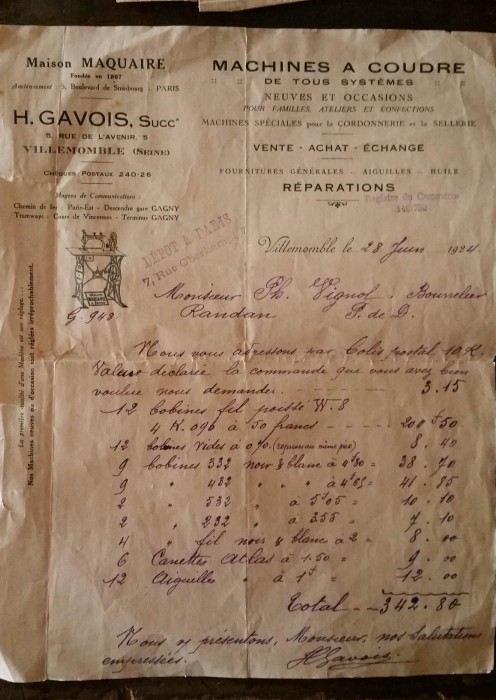 Maison MAQUAIRE
Fondée en 1867
Anciennement : 3, Boulevard de Strasbourg - PARIS
H. GAVOIS, Succr
5, RUE DE L'AVENIR, 5
VILLEMOMBLE (SEINE)
CHÈQUES POSTAUX 240-26
Moyens de Communication :
Chemin de fer - Paris-Est - Descendre gare GAGNY
Tramways - Cours de Vincennes - Terminus GAGNY
MACHINES A COUDRE
DE TOUS SYSTÈMES
NEUVES ET OCCASIONS
POUR FAMILLES, ATELIERS ET CONFECTIONS
MACHINES SPÉCIALES pour la CORDONNERIE et la SELLERIE
VENTE - ACHAT - ÉCHANGE
FOURNITURES GÉNÉRALES - AIGUILLES - HUILE
RÉPARATIONS
Registre du Commerce
DÉPOT A PARIS
7, Rue
Villemomble le 28 Juin 1924
La première qualité d'une Machine est son réglage...
Nos Machines neuves ou d'occasion sont réglées irréprochablement.
G 948
Monsieur Ph. Vignol. Bourrelier
Randan P. de D.
Nous vous adressons par Colis postal 10 K.
Valeur déclarée la commande que vous avez bien
voulu nous demander. 3.15
12 bobines fil poissé W. 8
4 K. 090 à 50 francs 50
12 bobines vides à 0.70 (reprises au même prix) 8.40
9 bobines 332 noir & blanc à 4f30 = 38.70
9 " 432 " " à 4f65 = 41.85
2 " 532 " à 5f05 = 10.10
2 " 232 " à 355 = 7.10
4 " fil noir & blanc à 2 = 8.00
6 Canettes Atlas à 1.50 = 9.00
12 Aiguelles " à 1f = 12.00
Total - 342.80
Nous vs présentons, Monsieur, nos Salutations
empressées. HGavois